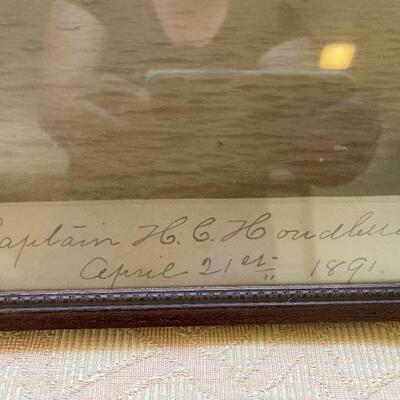 Captain H. C. Houdlette
April 21st 1891.